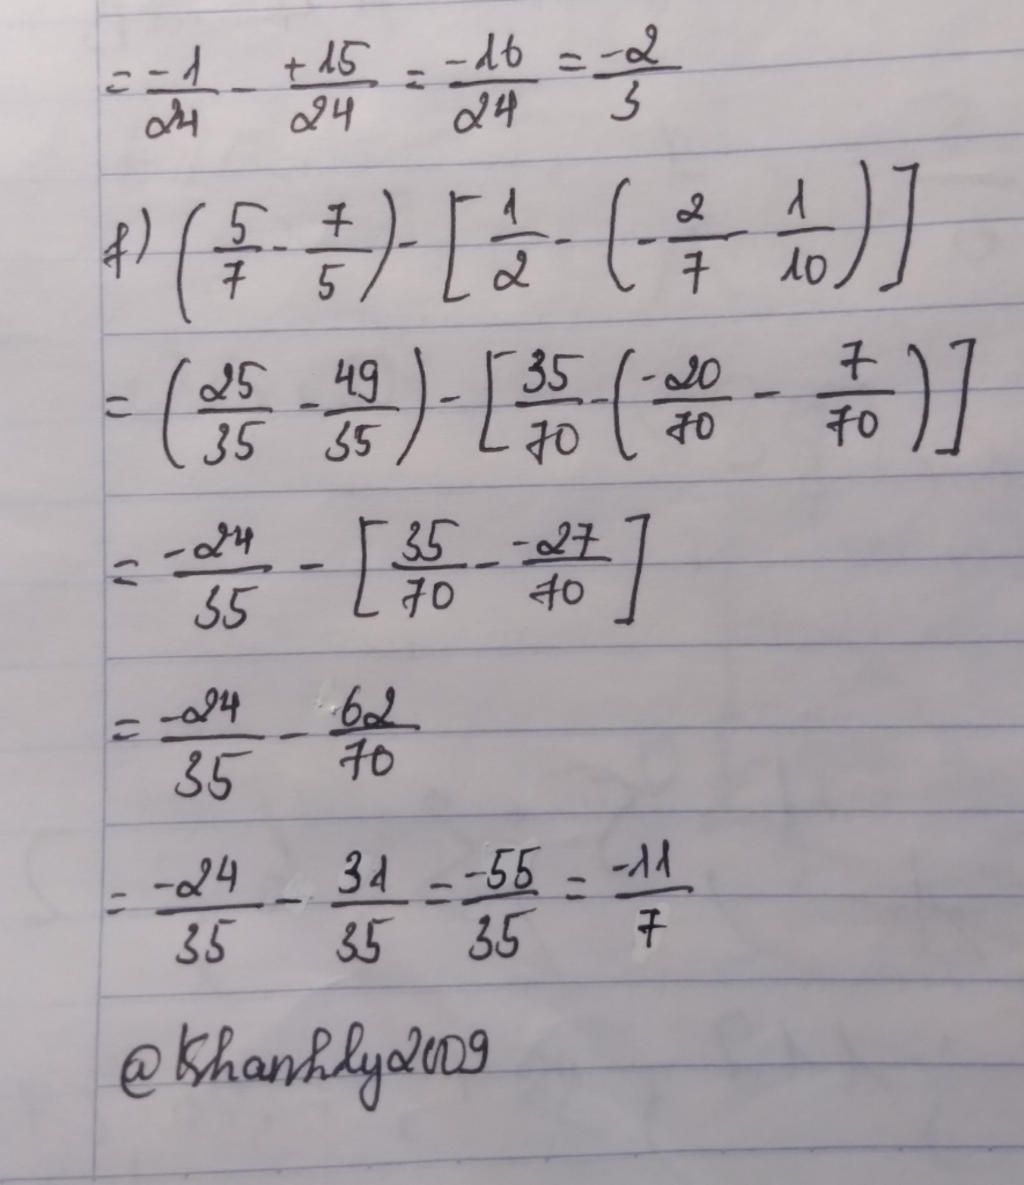 = -1/24 - +15/24 = -16/24 = -2/3
f) (5/7 - 7/5) - [1/2 - (-2/7 - 1/10)]
= (25/35 - 49/35) - [35/70 - (-20/70 - 7/70)]
= -24/35 - [35/70 - -27/70]
= -24/35 - 62/70
= -24/35 - 31/35 = -55/35 = -11/7
@Khanhly2009